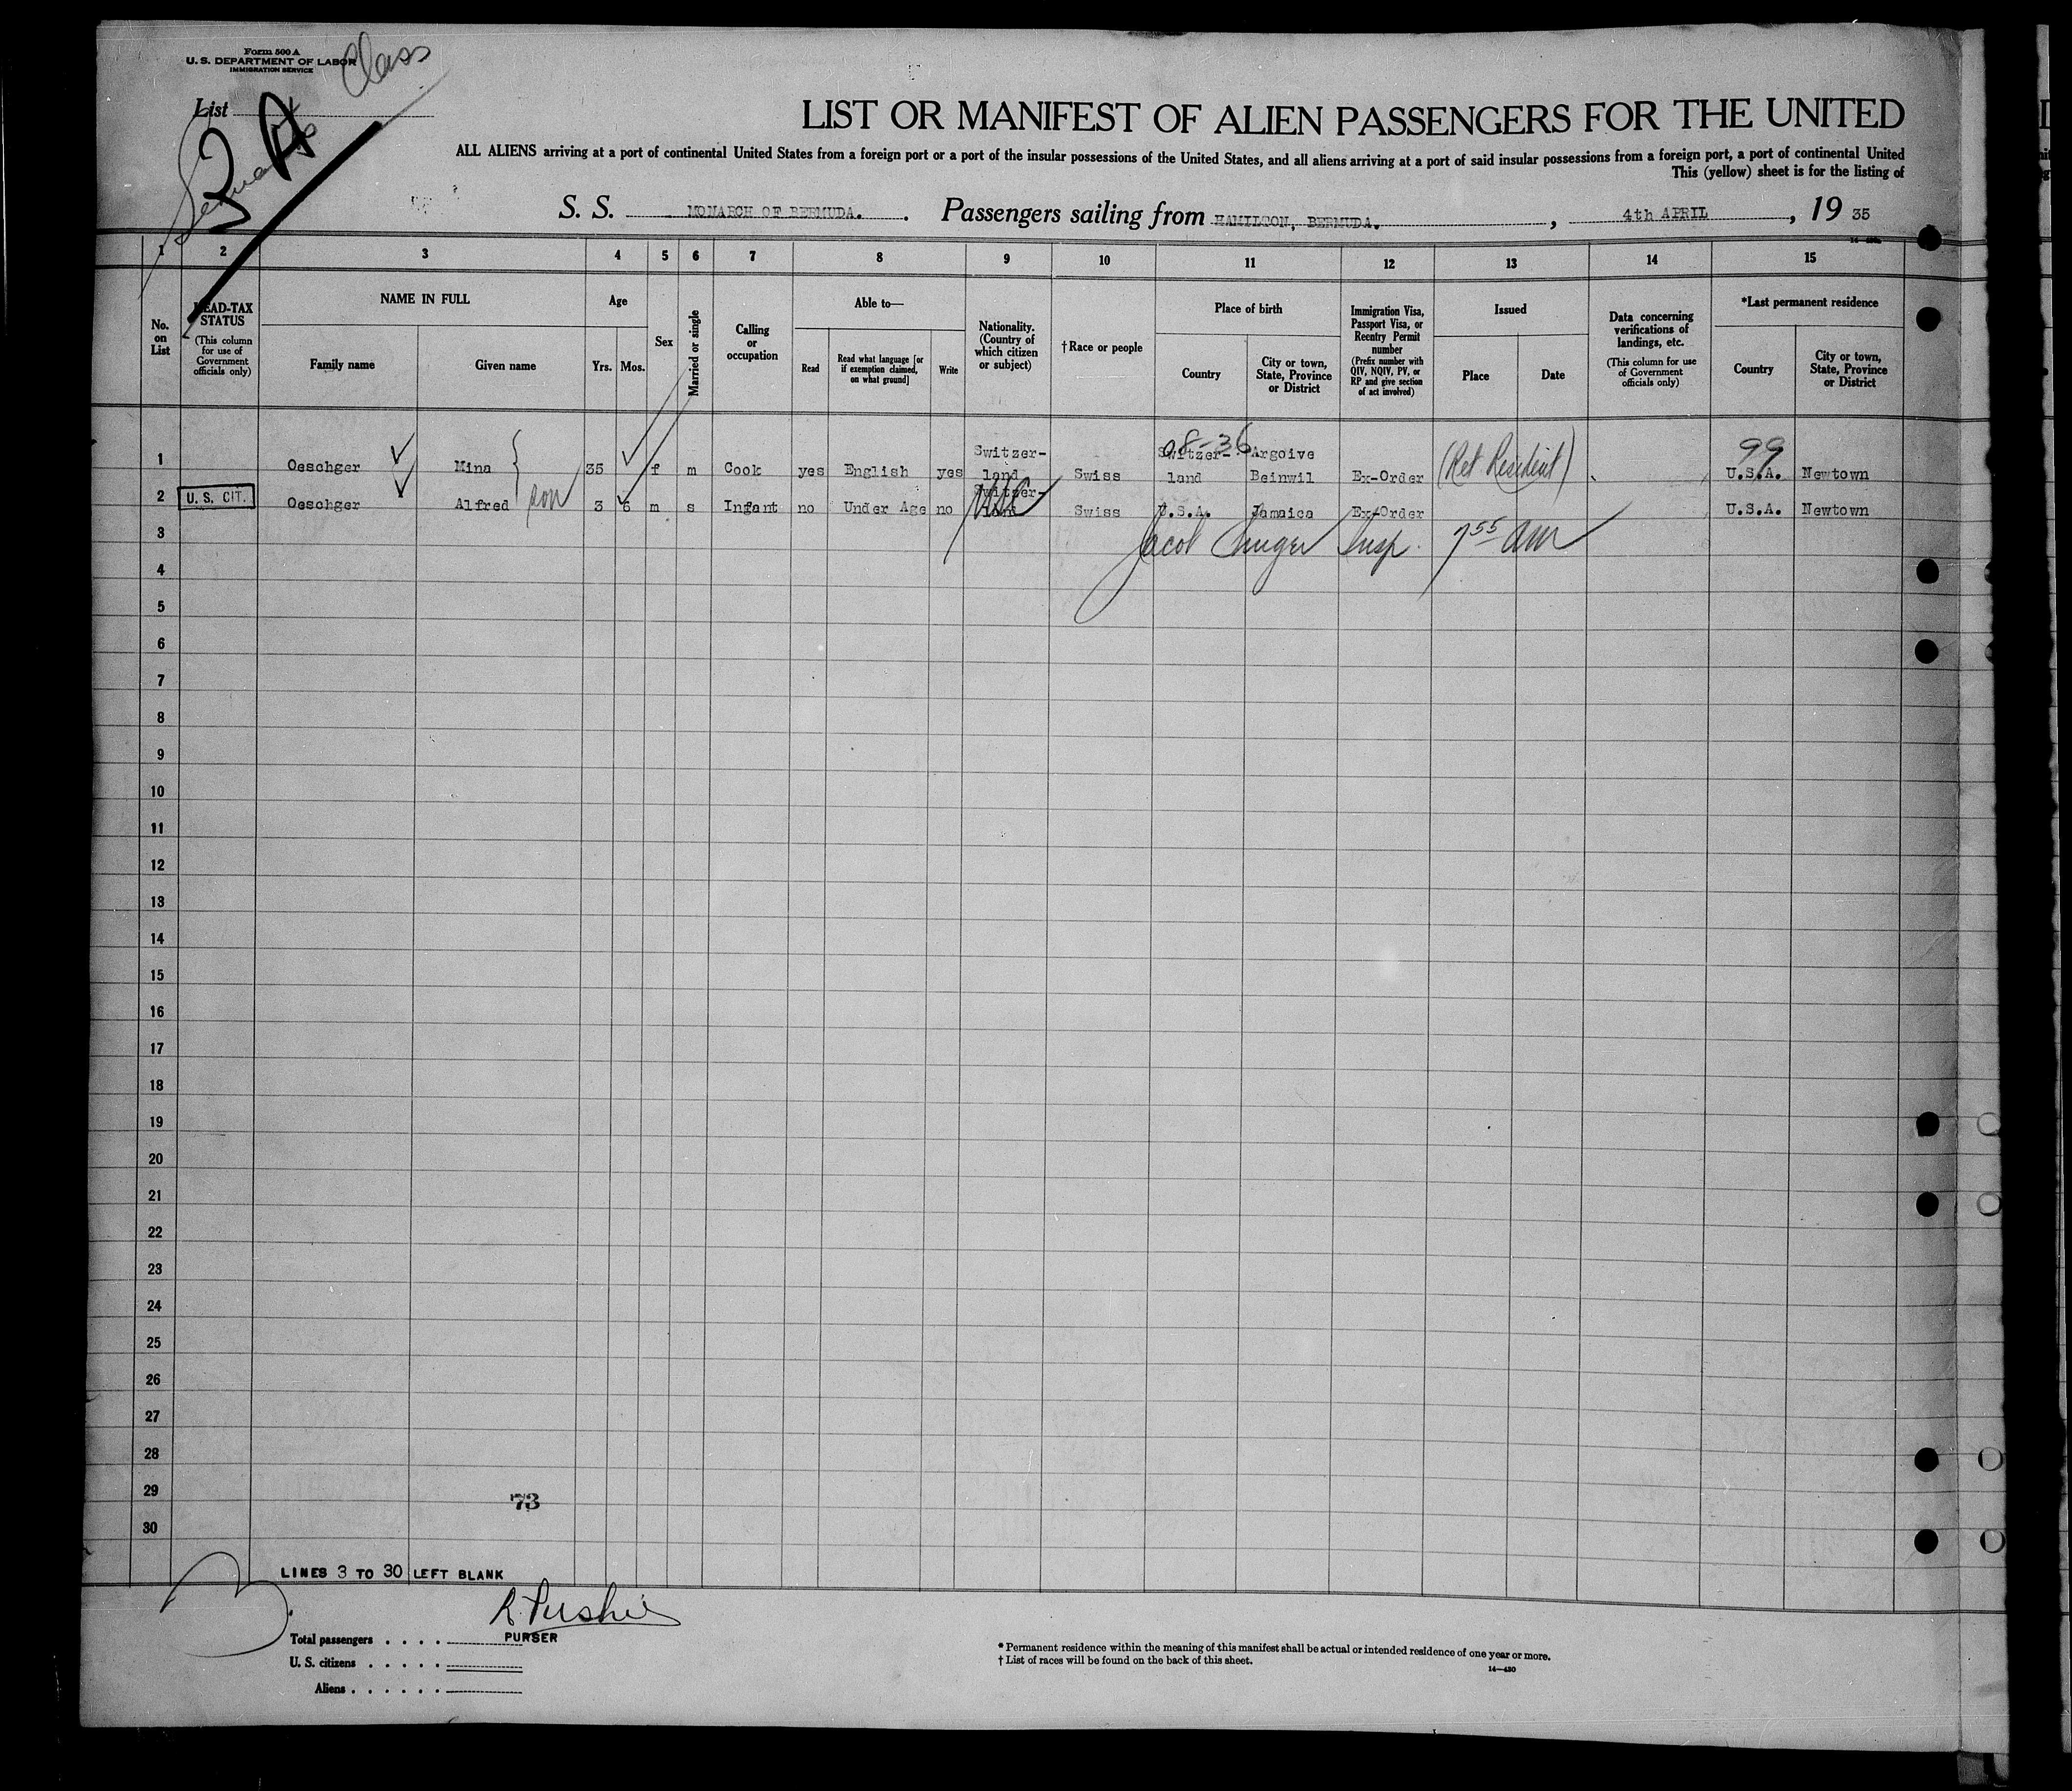 Form 500 A
U. S. DEPARTMENT OF LABOR
IMMIGRATION SERVICE
Class
List
2 A
LIST OR MANIFEST OF ALIEN PASSENGERS FOR THE UNITED
ALL ALIENS arriving at a port of continental United States from a foreign port or a port of the insular possessions of the United States, and all aliens arriving at a port of said insular possessions from a foreign port, a port of continental United
This (yellow) sheet is for the listing of
S. S. MONARCH OF BERMUDA. Passengers sailing from HAMILTON, BERMUDA. , 4th APRIL , 19 35
1 2 3 4 5 6 7 8 9 10 11 12 13 14 15
No. on List
HEAD-TAX STATUS
(This column for use of Government officials only)
NAME IN FULL
Family name
Given name
Age
Yrs. Mos.
Sex
Married or single
Calling or occupation
Able to—
Read
Read what language [or if exemption claimed, on what ground]
Write
Nationality. (Country of which citizen or subject)
†Race or people
Place of birth
Country
City or town, State, Province or District
Immigration Visa, Passport Visa, or Reentry Permit number
(Prefix number with QIV, NQIV, PV, or RP and give section of act involved)
Issued
Place
Date
Data concerning verifications of landings, etc.
(This column for use of Government officials only)
*Last permanent residence
Country
City or town, State, Province or District
98-36
99
1 Oeschger Mina 35 f m Cook yes English yes Switzer-land Swiss Switzer-land Argoive Beinwil Ex-Order (Ret Resident) U.S.A. Newtown
2 U. S. CIT. Oeschger Alfred son 3 6 m s Infant no Under Age no Switzer-land Swiss U.S.A. Jamaica Ex-Order U.S.A. Newtown
3 Jacob Insp. 7 55 am
4
5
6
7
8
9
10
11
12
13
14
15
16
17
18
19
20
21
22
23
24
25
26
27
28
29
73
30
LINES 3 TO 30 LEFT BLANK
PURSER
Total passengers . . . .
U. S. citizens . . . . .
Aliens . . . . . .
* Permanent residence within the meaning of this manifest shall be actual or intended residence of one year or more.
† List of races will be found on the back of this sheet.
14—430